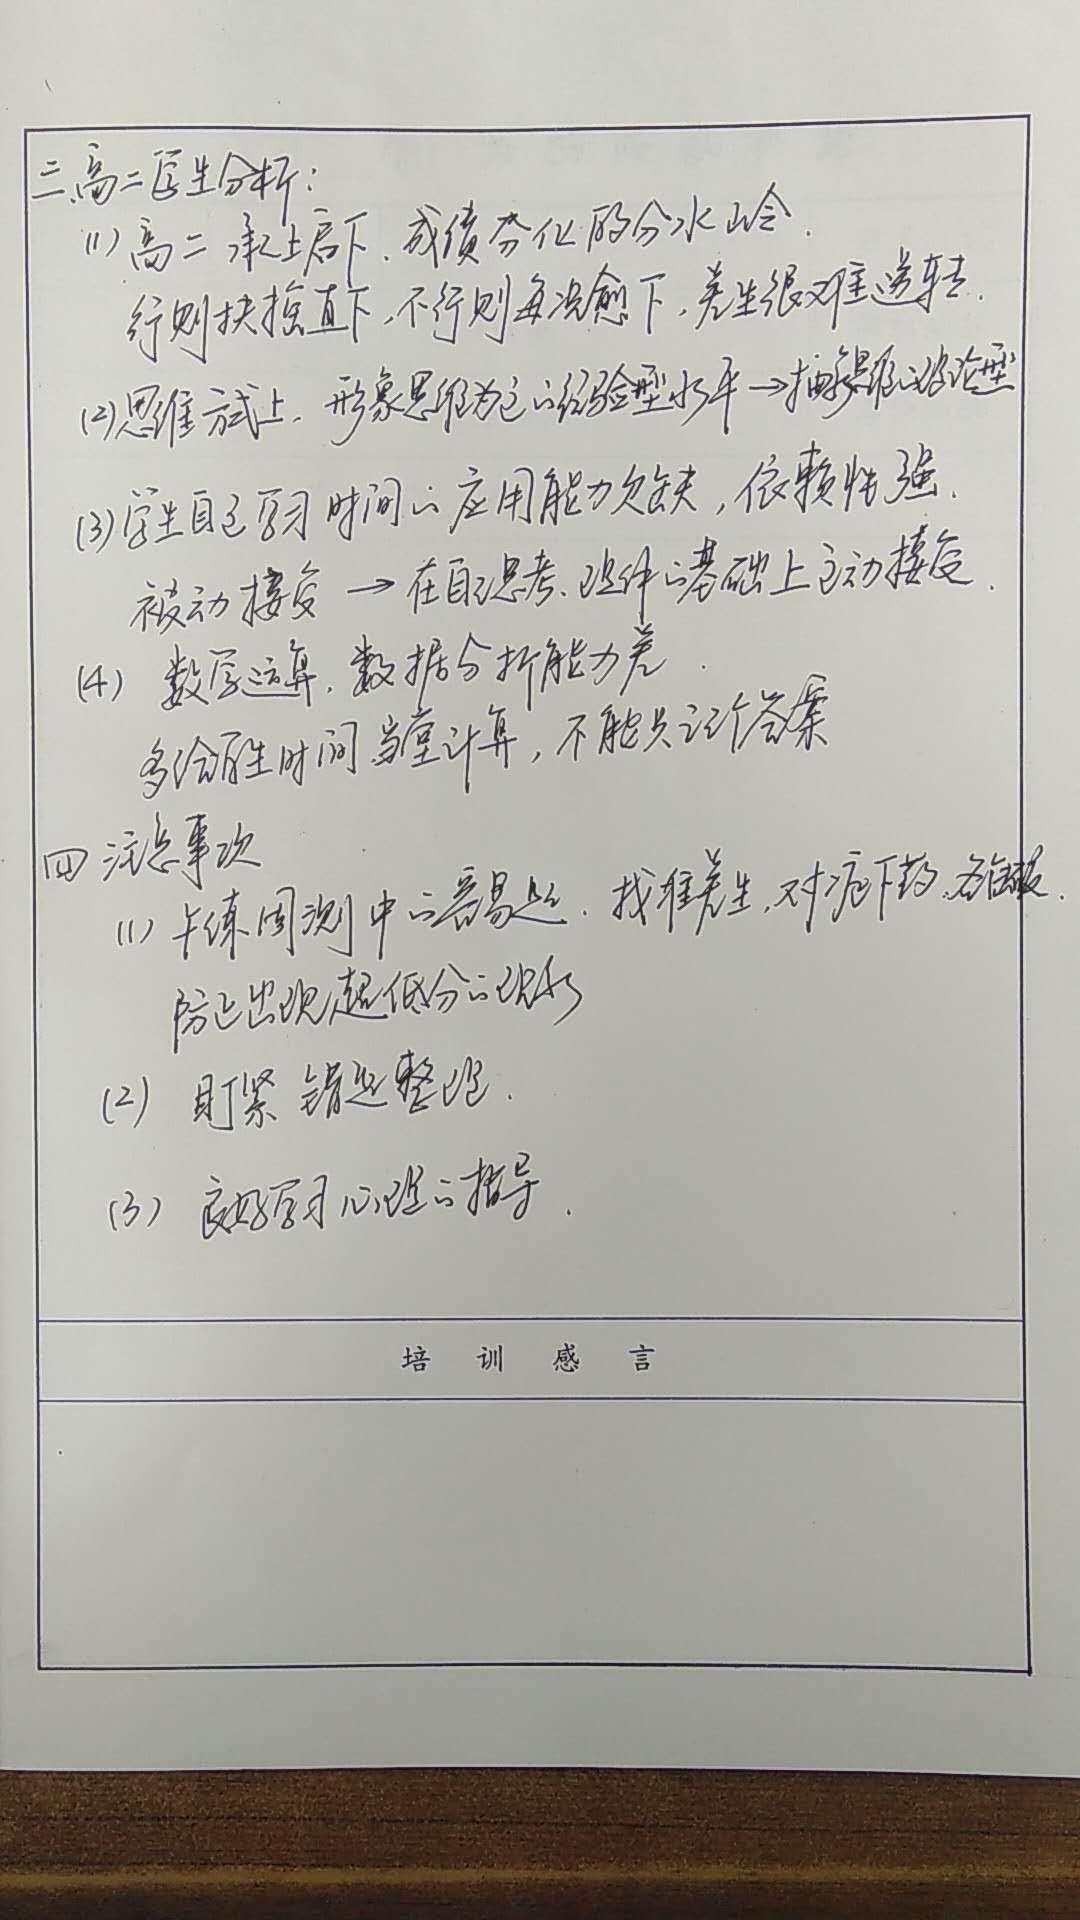 三、高二学生分析：
(1) 高二承上启下、成绩分化的分水岭.
行则扶摇直下，不行则每况愈下，差生很难逆转.
(2) 思维方式上，形象思维为主的经验型水平→抽象思维的理论型
(3) 学生自己学习时间的应用能力欠缺，依赖性强.
被动接受→在自己思考、理解的基础上主动接受.
(4) 数学运算，数据分析能力差.
多给学生时间当堂计算，不能只记个答案
四 注意事项
(1) 午练周测中的容易题. 找准差生，对症下药、
防止出现超低分的现象
(2) 盯紧错题整理.
(3) 良好学习心理的指导.
培训感言